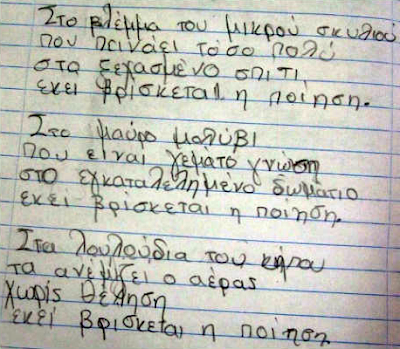 Στο βλέμμα του μικρού σκυλιού
που πεινάει τόσο πολύ
στο ξεχασμένο σπίτι,
εκεί βρίσκεται η ποίηση.
Στο μαύρο μολύβι
που είναι γεμάτο γνώση
στο εγκαταλελημένο δωμάτιο
εκεί βρίσκεται η ποίηση.
Στα λουλούδια του κήπου
τα ανεμίζει ο αέρας
χωρίς θέληση
εκεί βρίσκεται η ποίηση.